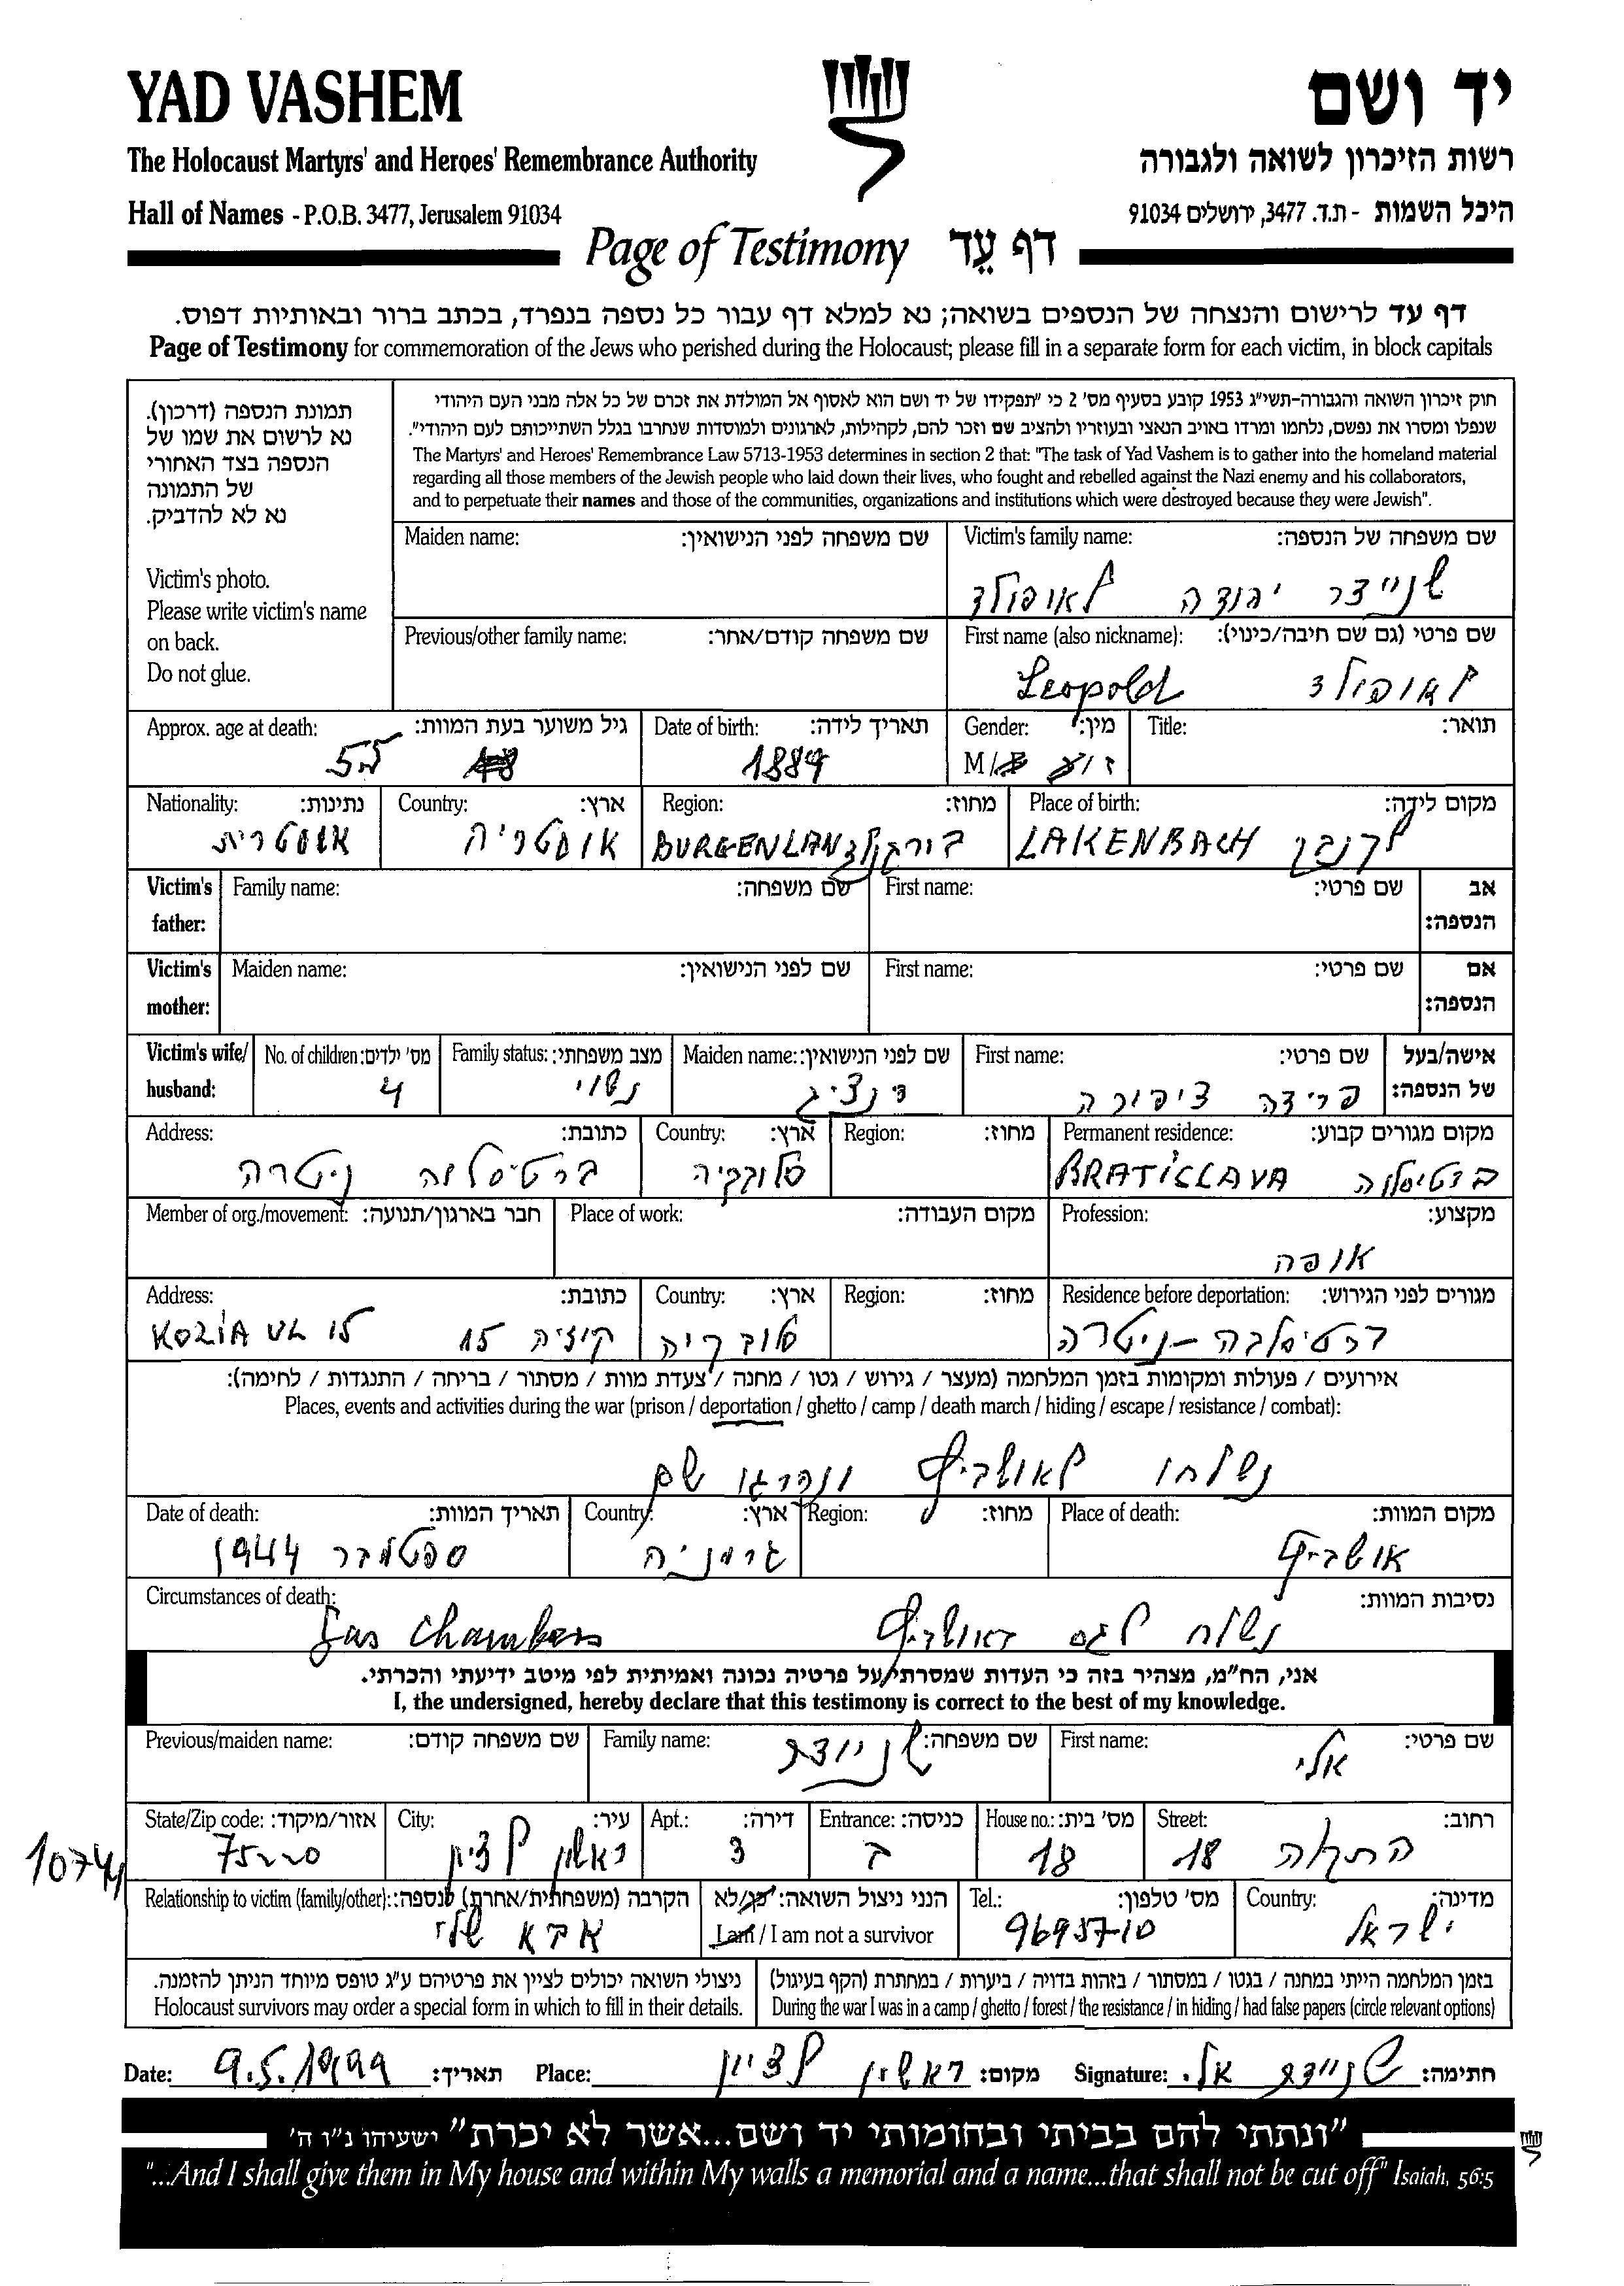 YAD VASHEM
יד ושם
The Holocaust Martyrs' and Heroes' Remembrance Authority
רשות הזיכרון לשואה ולגבורה
Hall of Names - P.O.B. 3477, Jerusalem 91034
היכל השמות - ת.ד. 3477, ירושלים 91034
Page of Testimony דף עד
דף עד לרישום והנצחה של הנספים בשואה; נא למלא דף עבור כל נספה בנפרד, בכתב ברור ובאותיות דפוס.
Page of Testimony for commemoration of the Jews who perished during the Holocaust; please fill in a separate form for each victim, in block capitals
תמונת הנספה (דרכון).
נא לרשום את שמו של
הנספה בצד האחורי
של התמונה
נא לא להדביק.
Victim's photo.
Please write victim's name
on back.
Do not glue.
חוק זיכרון השואה והגבורה-תשי"ג 1953 קובע בסעיף מס' 2 כי "תפקידו של יד ושם הוא לאסוף אל המולדת את זכרם של כל אלה מבני העם היהודי
שנפלו ומסרו את נפשם, נלחמו ומרדו באויב הנאצי ובעוזריו ולהציב שם וזכר להם, לקהילות, לארגונים ולמוסדות שנחרבו בגלל השתייכותם לעם היהודי".
The Martyrs' and Heroes' Remembrance Law 5713-1953 determines in section 2 that: "The task of Yad Vashem is to gather into the homeland material
regarding all those members of the Jewish people who laid down their lives, who fought and rebelled against the Nazi enemy and his collaborators,
and to perpetuate their names and those of the communities, organizations and institutions which were destroyed because they were Jewish".
Maiden name: שם משפחה לפני הנישואין:
Victim's family name: שם משפחה של הנספה:
שניידר יהודה לאופולד
Previous/other family name: שם משפחה קודם/אחר:
First name (also nickname): שם פרטי (גם שם חיבה/כינוי):
Leopold לאופולד
Approx. age at death: גיל משוער בעת המוות:
55
Date of birth: תאריך לידה:
1889
Gender: מין:
M / זכר
Title: תואר:
Nationality: נתינות:
אוסטרית
Country: ארץ:
אוסטריה
Region: מחוז:
BURGENLAND בורגנלנד
Place of birth: מקום לידה:
LAKENBACH לקנבך
Victim's father: Family name: שם משפחה: First name: שם פרטי: אב הנספה:
Victim's mother: Maiden name: שם לפני הנישואין: First name: שם פרטי: אם הנספה:
Victim's wife/ husband:
No. of children: מס' ילדים:
4
Family status: מצב משפחתי:
נשוי
Maiden name: שם לפני הנישואין:
דנציג
First name: שם פרטי:
פרידה ציפורה
אישה/בעל של הנספה:
Address: כתובת:
ברטיסלוה ניטרה
Country: ארץ:
סלובקיה
Region: מחוז:
Permanent residence: מקום מגורים קבוע:
BRATISLAVA ברטיסלוה
Member of org./movement: חבר בארגון/תנועה:
Place of work: מקום העבודה:
Profession: מקצוע:
אופה
Address: כתובת:
KOZIA UL 15 קוזיה 15
Country: ארץ:
סלובקיה
Region: מחוז:
Residence before deportation: מגורים לפני הגירוש:
ברטיסלבה - ניטרה
אירועים / פעולות ומקומות בזמן המלחמה (מעצר / גירוש / גטו / מחנה / צעדת מוות / מסתור / בריחה / התנגדות / לחימה):
Places, events and activities during the war (prison / deportation / ghetto / camp / death march / hiding / escape / resistance / combat):
נשלחו לאושביץ ונהרגו שם
Date of death: תאריך המוות:
ספטמבר 1944
Country: ארץ:
גרמניה
Region: מחוז:
Place of death: מקום המוות:
אושביץ
Circumstances of death: נסיבות המוות:
Gas Chambers נשלח לגז באושביץ
אני, הח"מ, מצהיר בזה כי העדות שמסרתי על פרטיה נכונה ואמיתית לפי מיטב ידיעתי והכרתי.
I, the undersigned, hereby declare that this testimony is correct to the best of my knowledge.
Previous/maiden name: שם משפחה קודם:
Family name: שם משפחה:
שניידר
First name: שם פרטי:
אלי
State/Zip code: אזור/מיקוד:
City: עיר:
ראשון לציון
Apt.: דירה:
3
Entrance: כניסה:
ב
House no.: מס' בית:
18
Street: רחוב:
18
Relationship to victim (family/other): הקרבה (משפחתית/אחרת) לנספה:
אבא שלי
הנני ניצול השואה: כן/לא
I am / I am not a survivor
Tel.: מס' טלפון:
9695710
Country: מדינה:
ישראל
ניצולי השואה יכולים לציין את פרטיהם ע"ג טופס מיוחד הניתן להזמנה.
Holocaust survivors may order a special form in which to fill in their details.
בזמן המלחמה הייתי במחנה / בגטו / במסתור / בזהות בדויה / ביערות / במחתרת (הקף בעיגול)
During the war I was in a camp / ghetto / forest / the resistance / in hiding / had false papers (circle relevant options)
Date: 9.5.1999 תאריך: Place: ראשון לציון מקום: Signature: שניידר אלי חתימה:
"ונתתי להם בביתי ובחומותי יד ושם...אשר לא יכרת" ישעיהו נ"ו ה'
"...And I shall give them in My house and within My walls a memorial and a name...that shall not be cut off" Isaiah, 56:5